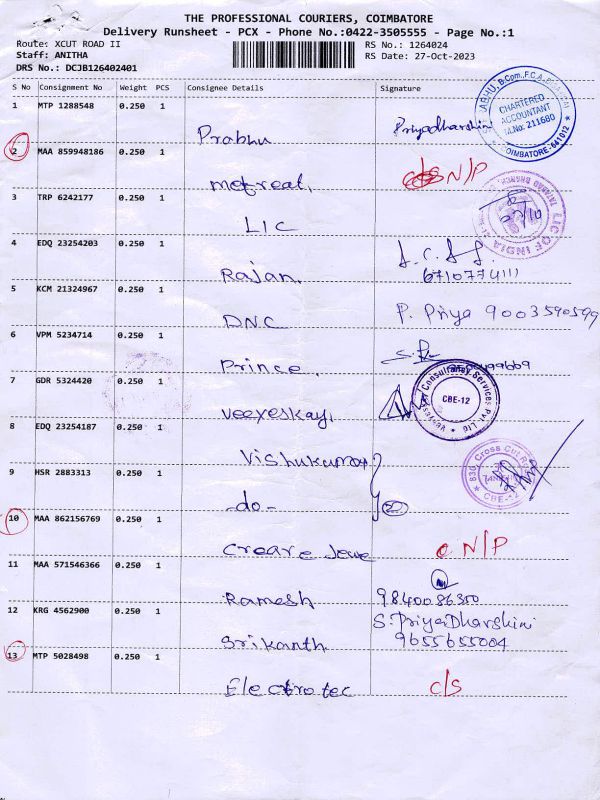 THE PROFESSIONAL COURIERS, COIMBATORE
Delivery Runsheet - PCX - Phone No.:0422-3505555 - Page No.:1
Route: XCUT ROAD II
Staff: ANITHA
DRS No.: DCJB126402401
RS No.: 1264024
RS Date: 27-Oct-2023
S No Consignment No Weight PCS Consignee Details Signature
1 MTP 1288548 0.250 1
Prabhu Priyadharshini
CHARTERED ACCOUNTANT M.No: 211680 COIMBATORE-641012
2 MAA 859948186 0.250 1
mefreal, N/P
3 TRP 6242177 0.250 1
LIC
LIC OF INDIA
4 EDQ 23254203 0.250 1
Rajan. 6710774111
5 KCM 21324967 0.250 1
DNC P. Priya 9003590599
6 VPM 5234714 0.250 1
Prince.
7 GDR 5324420 0.250 1
Veeyeskay,
Consultancy Services Pvt. Ltd CBE-12
8 EDQ 23254187 0.250 1
Vishukumar
9 HSR 2883313 0.250 1
-do- 2
830, Cross Cut CBE-12
10 MAA 862156769 0.250 1
Creare Jewe N/P
11 MAA 571546366 0.250 1
Ramesh 9840086350
12 KRG 4562900 0.250 1
Srikanth S.PriyaDharshini
9655655004
13 MTP 5028498 0.250 1
Electrotec C/S